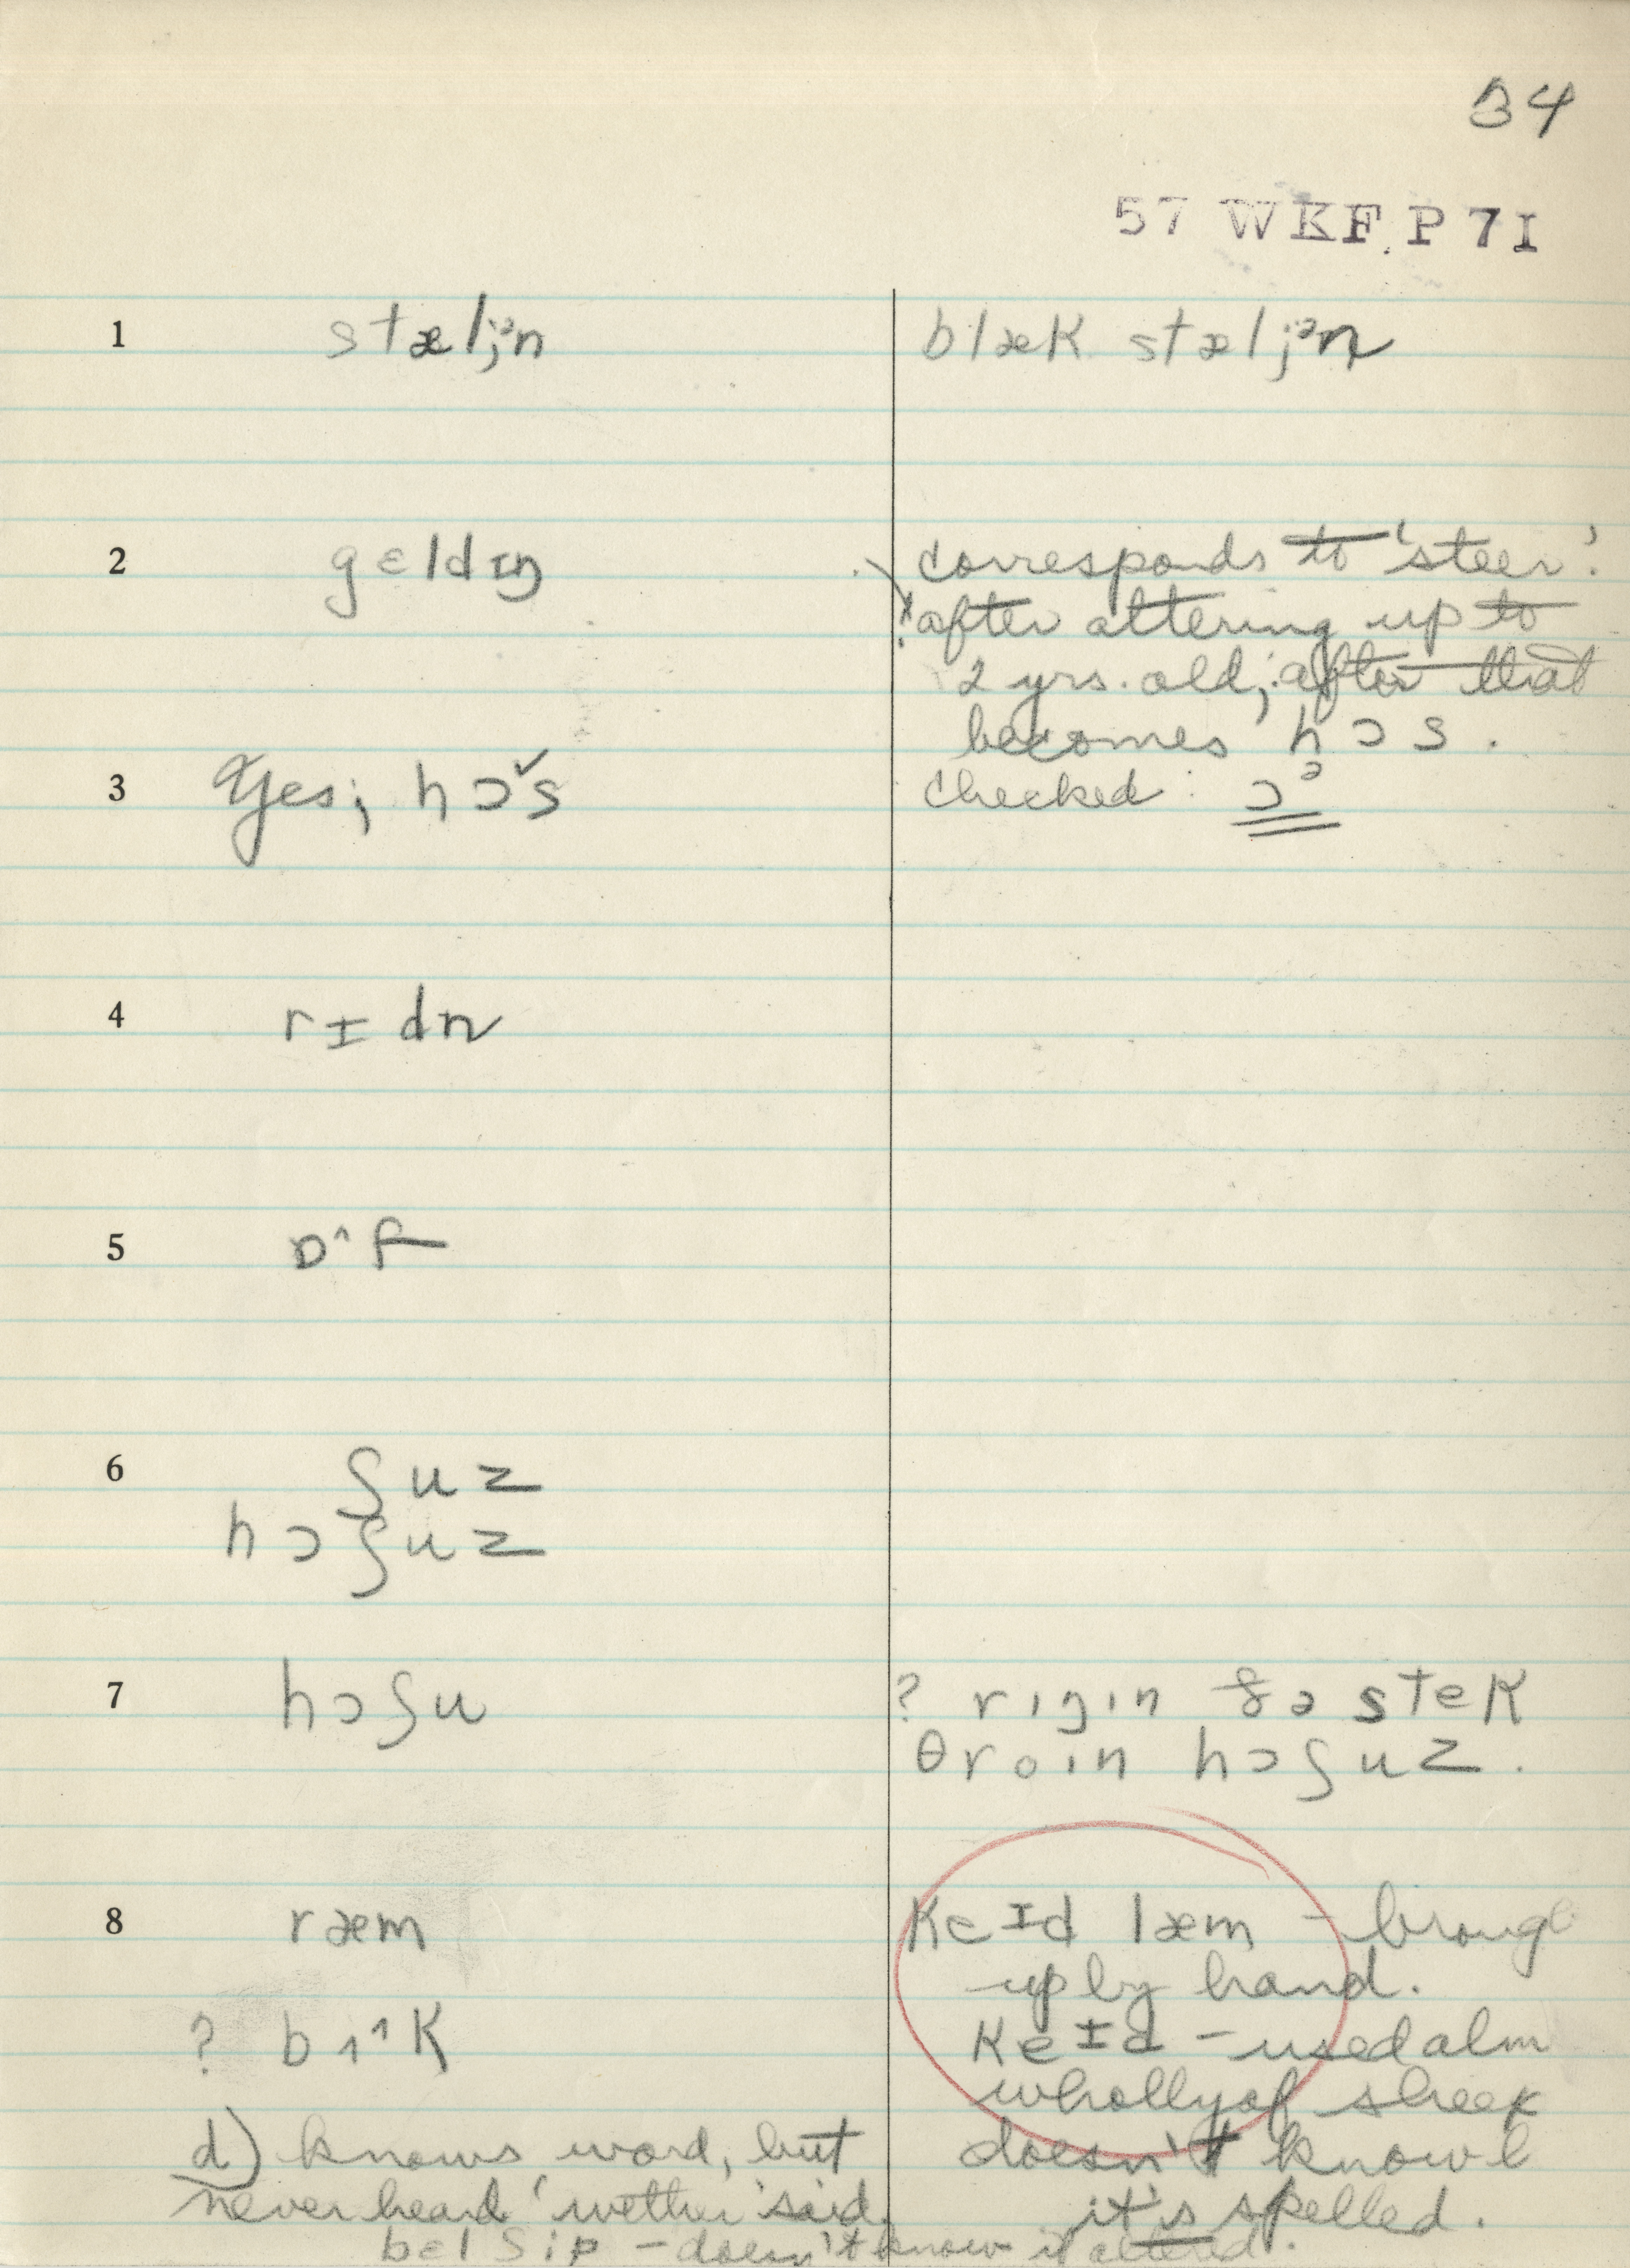 34
57 WKF. P 7I
1 stælj.ᵊn
blæk stælj.ᵊn
2 gɛldɪŋ
corresponds to 'steer'.
after altering up to
2 yrs. old; after that
becomes hɔs.
3 Yes; hɔˇs
checked: ɔᵊ
4 rɪdn
5 ɒ^f
6 ʃuz
hɔʃuz
7 hɔʃu
? rɪŋɪn ðə stek
θroɪn hɔʃuz.
8 ræm
keɪd læm – brough
up by hand.
? bʌ^k
keɪd – used alm
wholly of sheep
d) knows word, but
doesn't know
never heard 'wether' said.
it's spelled.
bɛl ʃip – doesn't know if altered.